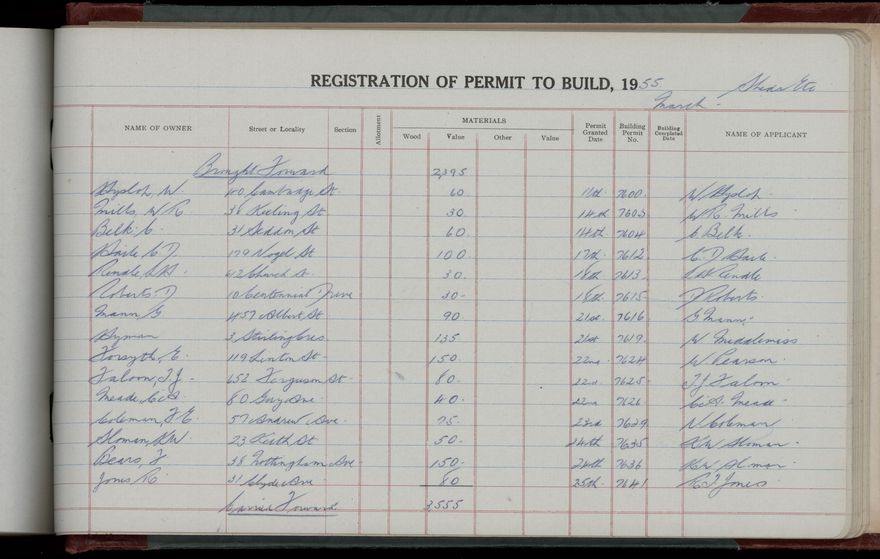 REGISTRATION OF PERMIT TO BUILD, 1955
March - Sheds Etc
NAME OF OWNER Street or Locality Section Allotment MATERIALS Wood Value Other Value Permit Granted Date Building Permit No. Building Completed Date NAME OF APPLICANT
Brought Forward 2,395
Hyslop, W. 40 Cambridge St. 60 11th 7600 W. Hyslop
Mills, W R 38 Keeling St 30 14th 7603 W R. Mills
Belk. C. 31 Seddon St 60 14th 7604 C Belk
C. D. 179 Vogel St 100 17th 7612 C. D
Rendle, 42 Church St 30 18th 7613 Rendle
Roberts. D 10 Centennial Drive 30 18th 7615 D Roberts
Mann, G 457 Albert St 90 21st 7616 G Mann
Hyman 3 Stirling Cres 135 21st 7619 W Middlemiss
Forsyth, E. 119 Linton St 150 22nd 7624 W Pearson
Faloon, T J 652 Ferguson St 80 22nd 7625 T J Faloon
Meade, C. A. 80 Guy Ave 40 22nd 7626 C. A. Meade
Coleman, F E. 57 Andrew Ave 75 23rd 7629 N Coleman
Sloman, K W 23 Keith St 50 24th 7635 K W Sloman
Pears, F 38 Nottingham Ave 150 24th 7636 K W Sloman
Jones R 31 Clyde Ave 80 25th 7641 R J Jones
Carried Forward 3,555